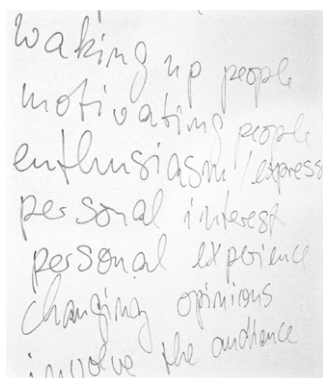 waking up people
motivating people
enthusiasm / express
personal interest
personal experience
changing opinions
involve the audience